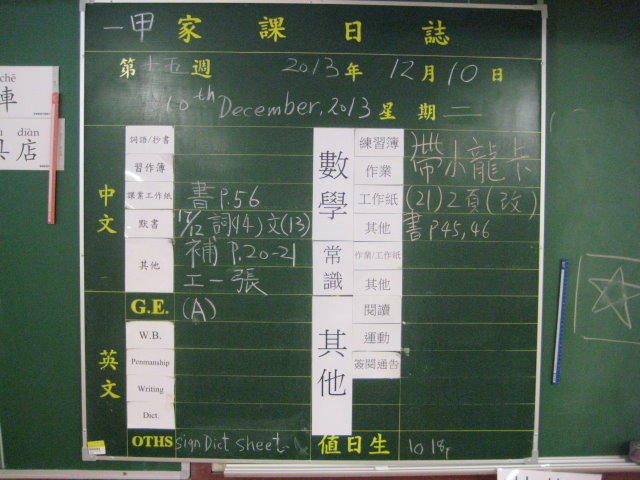 一甲 家課日誌
第十五週 2013年 12月10日
10th December, 2013 星期二
chē
車
diàn
店
中文
詞語/抄書
習作簿
課業工作紙 書P.56
默書 詞(14)文(13)
其他 補 P.20-21
工一張
英文
G.E. (A)
W.B.
Penmanship
Writing
Dict.
OTHS sign Dict sheet.
數學
練習簿 帶小龍卡
作業
工作紙 (21)2頁(改)
其他 書P45,46
常識
作業/工作紙
其他
其他
閱讀
運動
簽閱通告
值日生 10 18